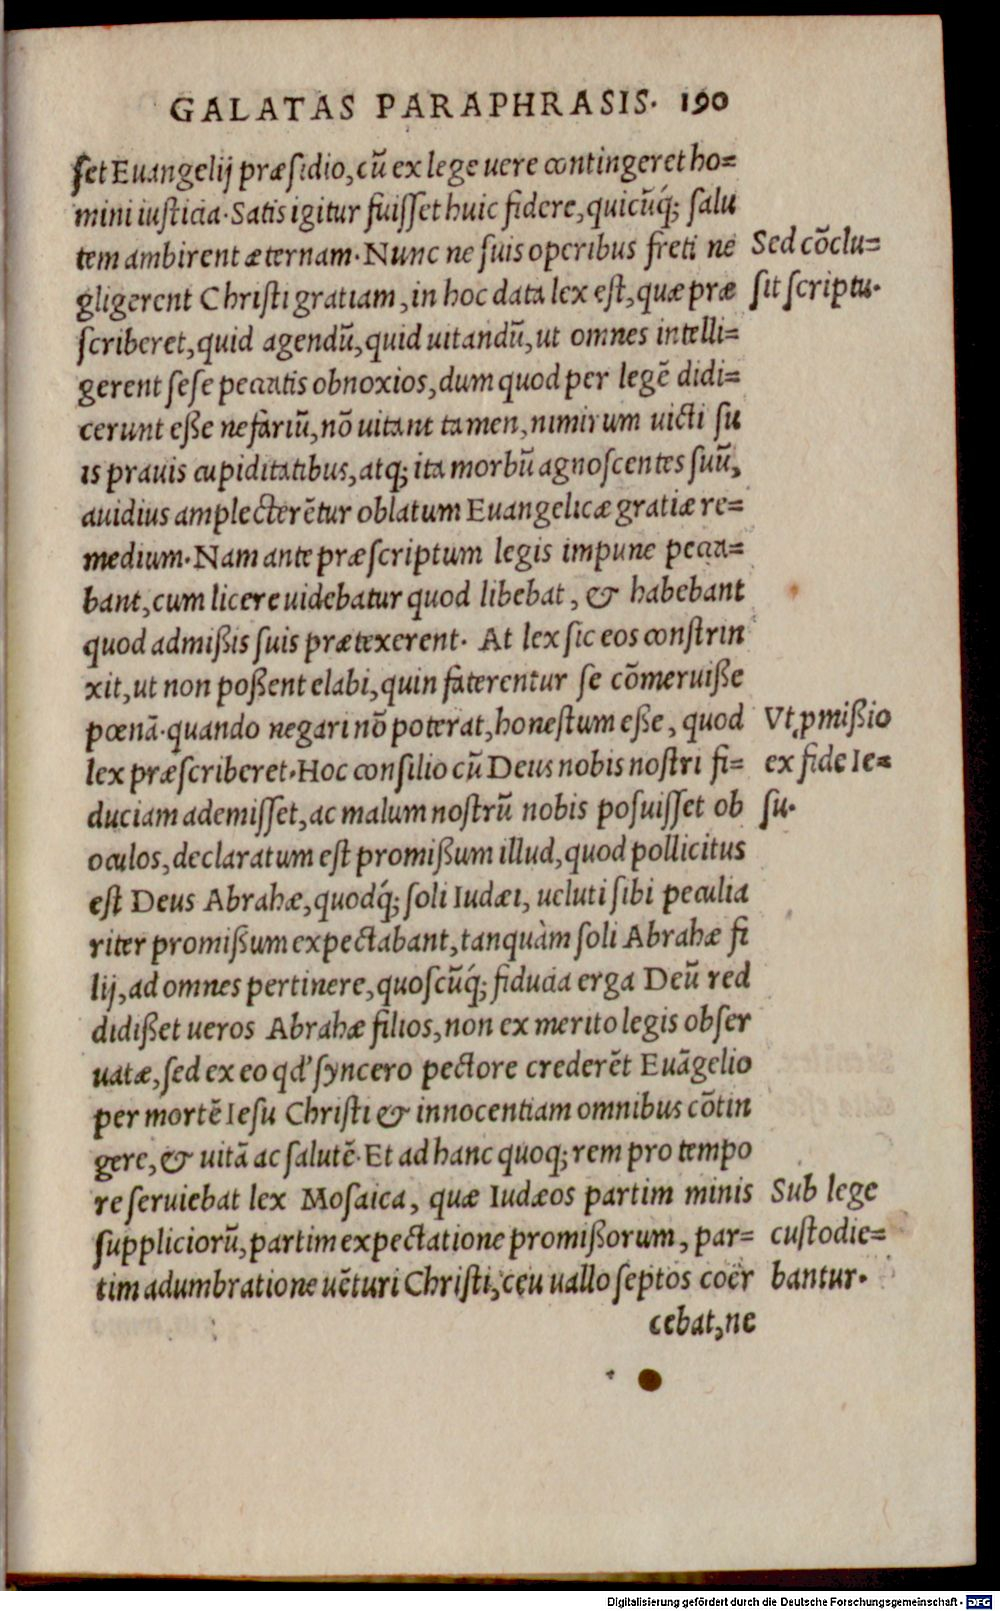 GALATAS PARAPHRASIS. 190
ſet Euangelij præſidio, cũ ex lege uere contingeret ho=
mini iuſticia. Satis igitur fuiſſet huic fidere, quicũq́; ſalu
tem ambirent æternam. Nunc ne ſuis operibus freti ne
Sed cõclu=
gligerent Chriſti gratiam, in hoc data lex eſt, quæ præ
ſit ſcriptu.
ſcriberet, quid agendũ, quid uitandũ, ut omnes intelli=
gerent ſeſe peccatis obnoxios, dum quod per legẽ didi=
cerunt eße nefariũ, nõ uitant tamen, nimirum uicti ſu
is prauis cupiditatibus, atq; ita morbũ agnoſcentes ſuũ,
auidius amplecterẽtur oblatum Euangelicæ gratiæ re=
medium. Nam ante præſcriptum legis impune pecca=
bant, cum licere uidebatur quod libebat, & habebant
quod admißis ſuis prætexerent. At lex ſic eos conſtrin
xit, ut non poßent elabi, quin faterentur ſe cõmeruiße
pœnã. quando negari nõ poterat, honeſtum eße, quod
Vt ꝓmißio
lex præſcriberet. Hoc conſilio cũ Deus nobis noſtri fi=
ex fide Ie=
duciam ademiſſet, ac malum noſtrũ nobis poſuiſſet ob
ſu.
oculos, declaratum eſt promißum illud, quod pollicitus
eſt Deus Abrahæ, quodq́; ſoli Iudæi, ueluti ſibi peculia
riter promißum expectabant, tanquàm ſoli Abrahæ fi
lij, ad omnes pertinere, quoſcũq́; fiducia erga Deũ red
didißet ueros Abrahæ filios, non ex merito legis obſer
uatæ, ſed ex eo qd' ſyncero pectore crederẽt Euãgelio
per mortẽ Ieſu Chriſti & innocentiam omnibus cõtin
gere, & uitã ac ſalutẽ. Et ad hanc quoq; rem pro tempo
re ſeruiebat lex Moſaica, quæ Iudæos partim minis
Sub lege
ſuppliciorũ, partim expectatione promißorum, par=
cuſtodie=
tim adumbratione uẽturi Chriſti, ceu uallo ſeptos coër
bantur.
cebat, ne
Digitalisierung gefördert durch die Deutsche Forschungsgemeinschaft - DFG